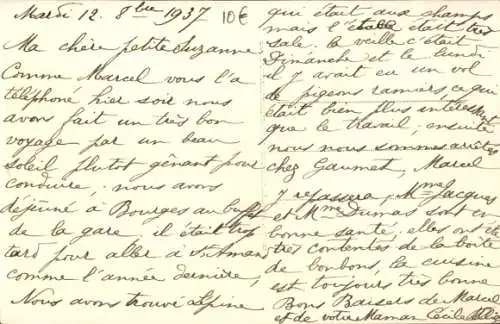 Mardi 12. 8bre 1937
10€
Ma chère petite Suzanne
Comme Marcel vous l'a
téléphoné hier soir nous
avons fait un très bon
voyage par un beau
soleil plutot gênant pour
conduire; nous avons
déjeûné à Bourges au buffet
de la gare, il était trop
tard pour aller à St Amand
comme l'année dernière,
Nous avons trouvé Alpine
qui était aux champs
mais l'étable était très
sale, la veille c'était
Dimanche et le lundi
il y avait eu un vol
de pigeons ramiers ce qui
était bien plus intéressant
que le travail; ensuite
nous nous sommes arrêtés
chez Gaumet, Marcel
y repassera, Mme Jacques
et Mme Dumas sont en
bonne santé; elles ont été
très contentes de la boîte
de bonbons, la cuisine
est toujours très bonne
Bons Baisers de Marcel
et de votre Maman Cécile